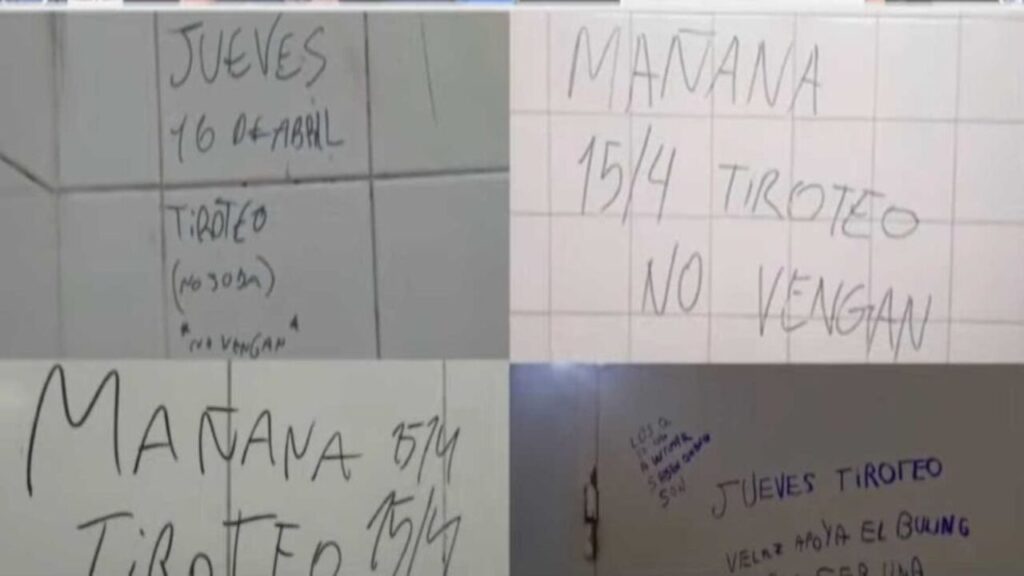 JUEVES
16 DE ABRIL
TIROTEO
(NO JODA)
"NO VENGAN"
MAÑANA
15/4 TIROTEO
NO VENGAN
MAÑANA 15/4
TIROTEO 15/4
LOS Q
A
SON
JUEVES TIROTEO
VELAZ APOYA EL BULING
SER UNA